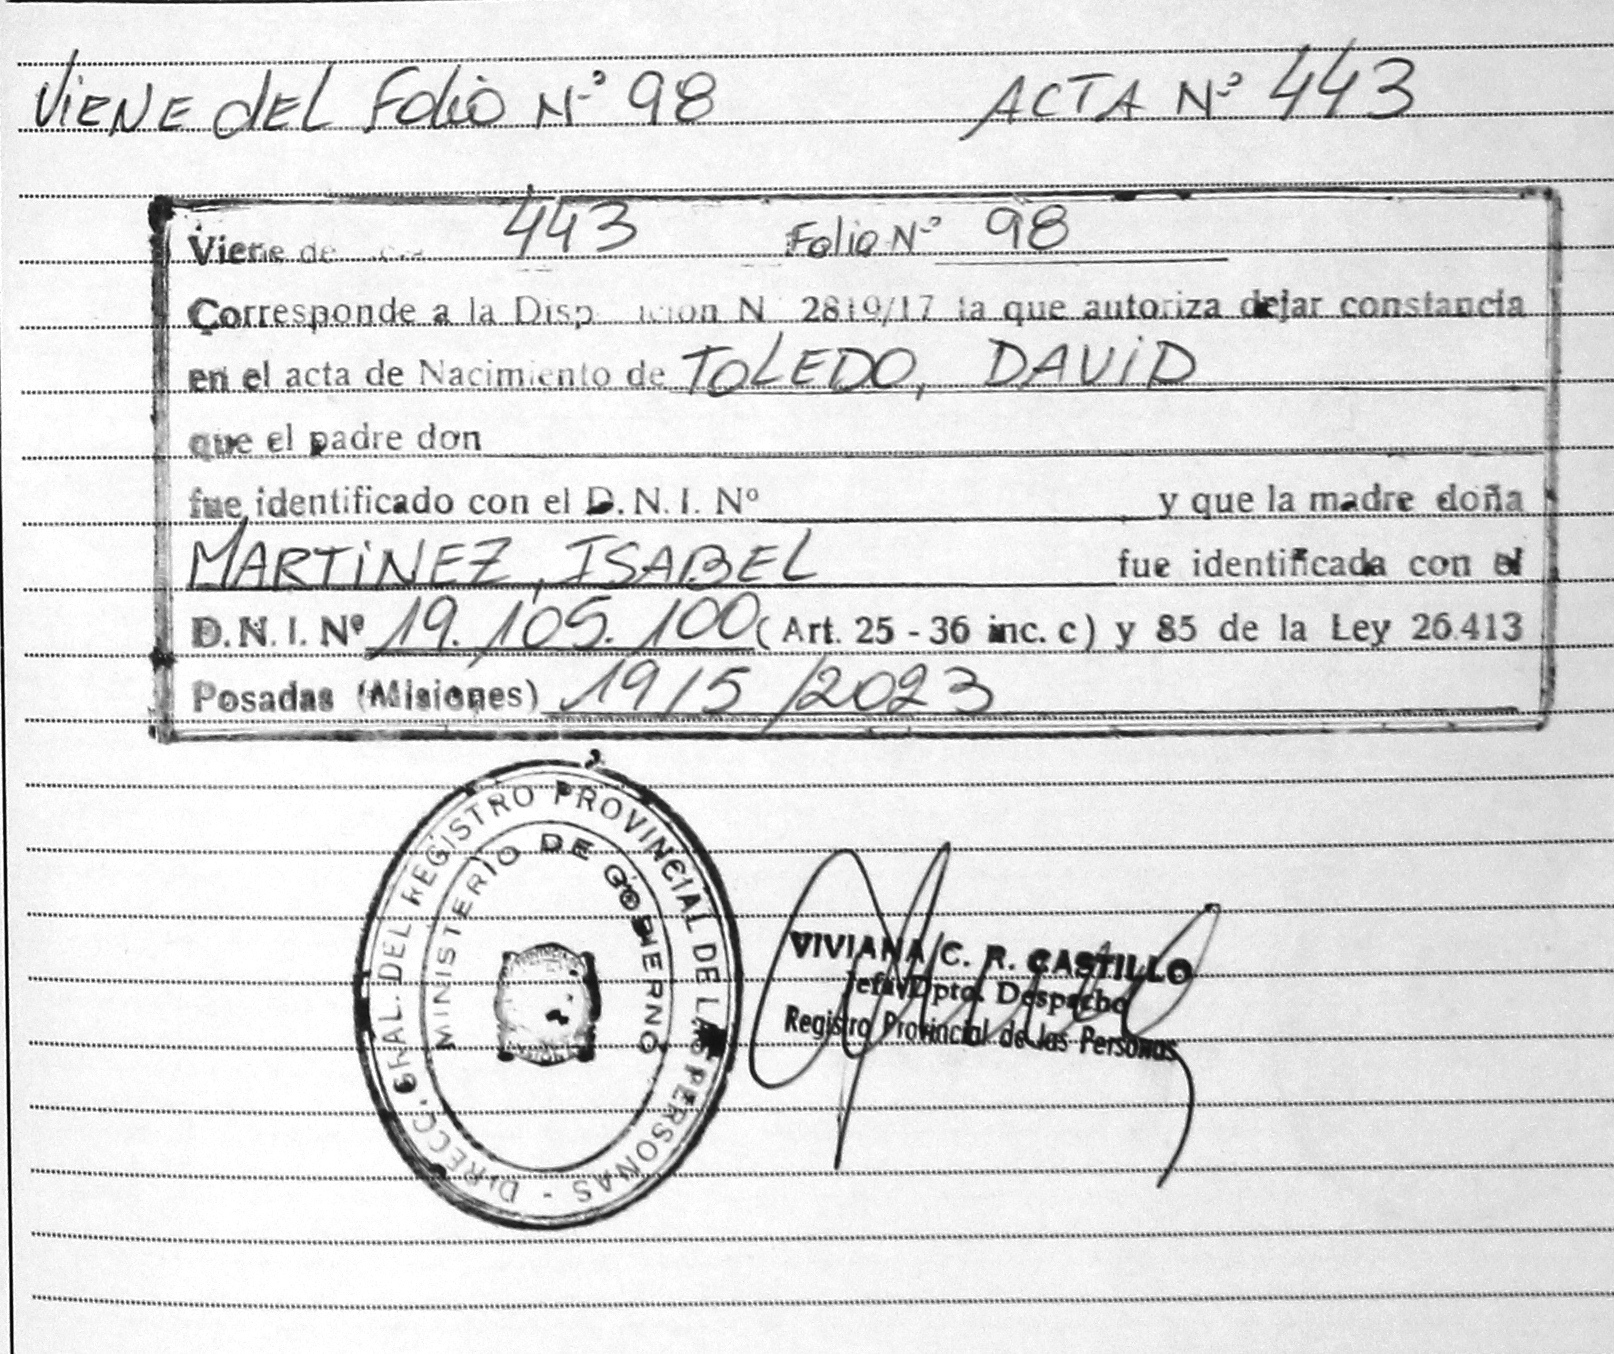 Viene del Folio Nº 98 ACTA Nº 443
Viene de 443 Folio Nº 98
Corresponde a la N 2819/17 la que autoriza dejar constancia
en el acta de Nacimiento de TOLEDO, DAVID
que el padre don
fue identificado con el D.N.I. Nº y que la madre doña
MARTINEZ, ISABEL fue identificada con el
D.N.I. Nº 19.105.100 (Art. 25 - 36 inc. c) y 85 de la Ley 26.413
Posadas (Misiones) 19/5/2023
DIRECC. GRAL. DEL REGISTRO PROVINCIAL DE LAS PERSONAS -
MINISTERIO DE GOBIERNO
VIVIANA C. R. CASTILLO
Jefa Dpto. Despacho
Registro Provincial de las Personas